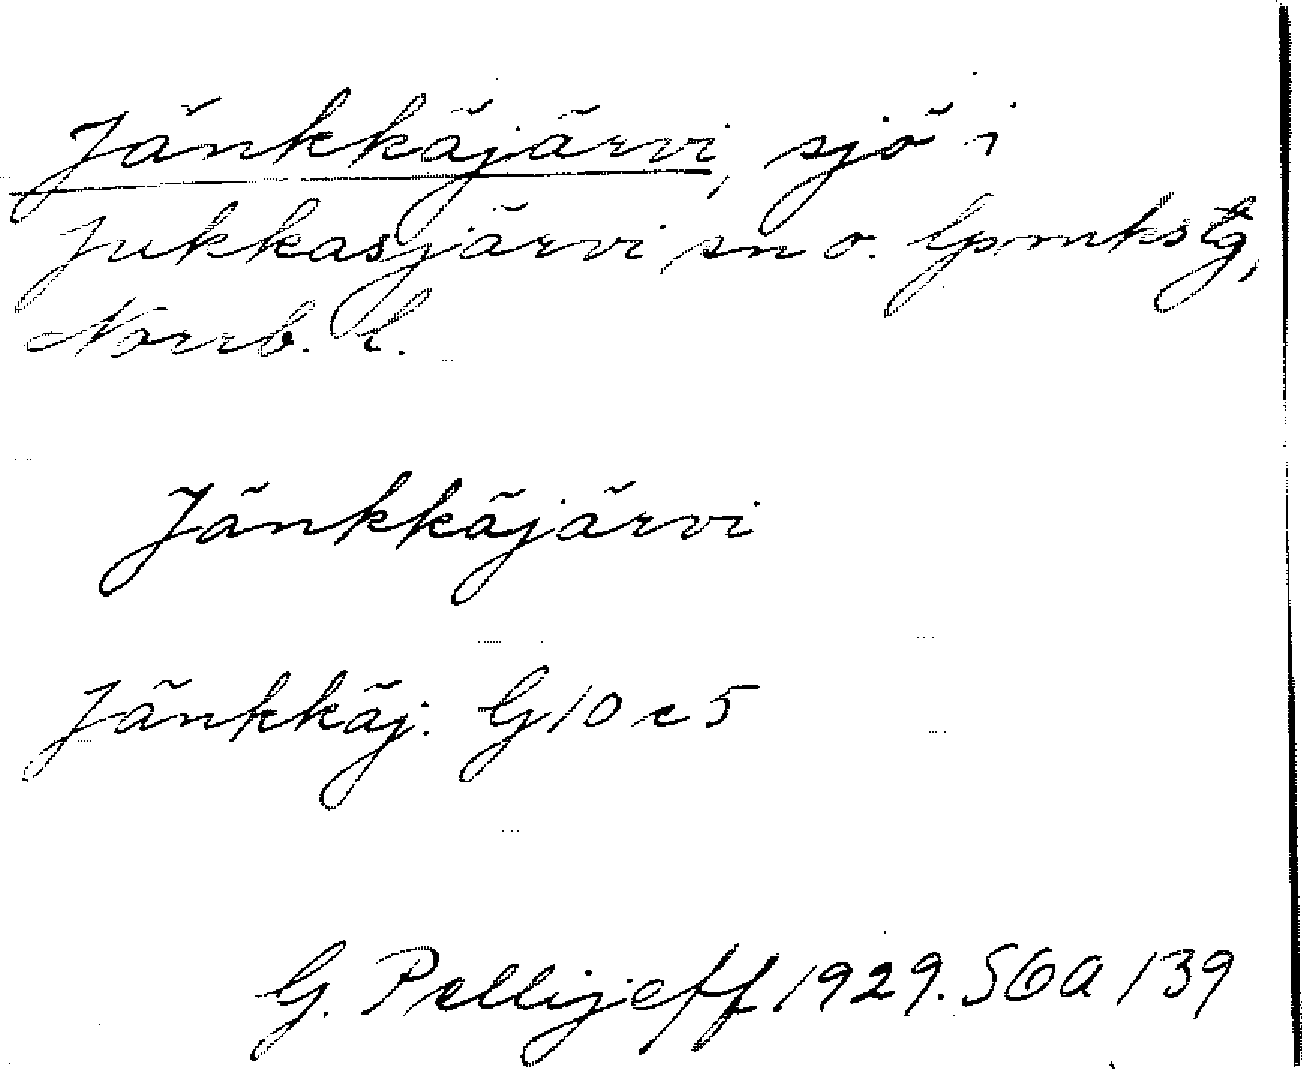 Jänkkäjärvi, sjö i
Jukkasjärvi sn o. lpmkstg,
Norrb. l.
Jänkkäjärvi
Jänkkäj: G10c5
G. Pellijeff 1929. SOA 139